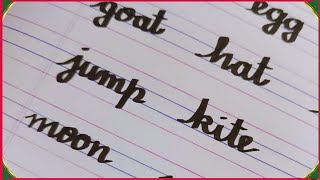 goat egg
jump hat
moon kite